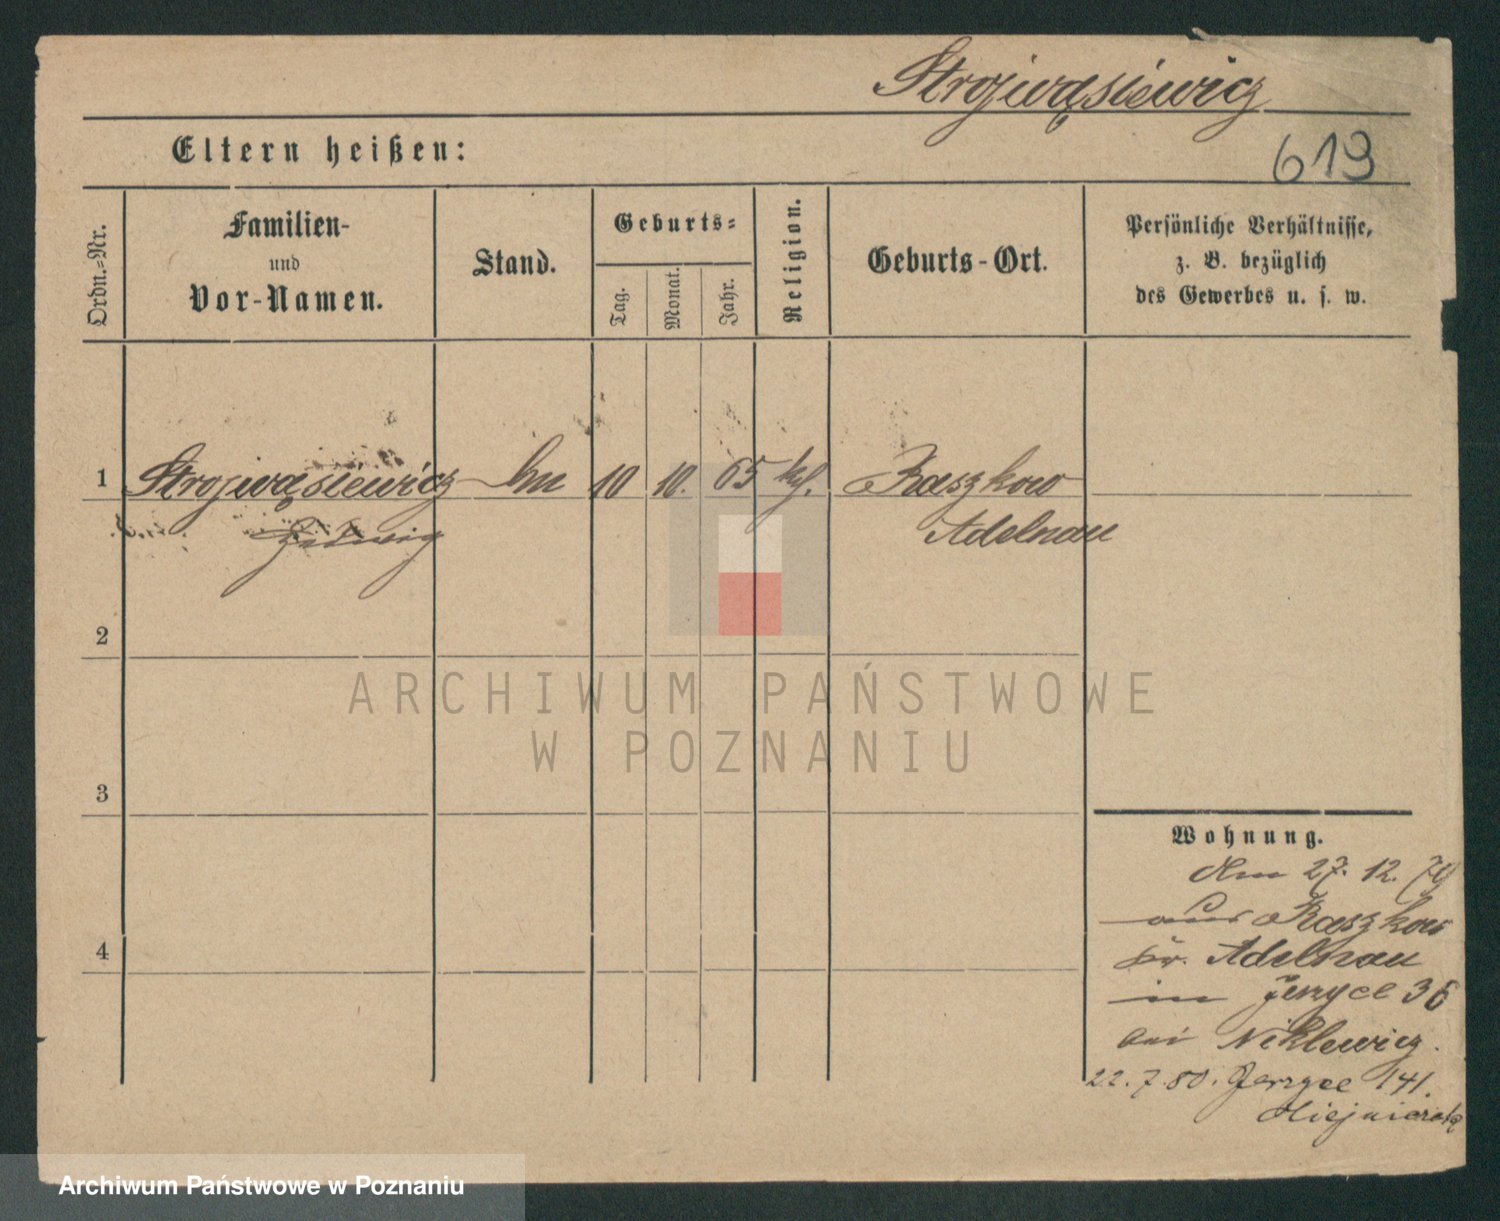 Strojwąsiewicz
Eltern heißen:
619
Ordn.-Nr.
Familien-
und
Vor-Namen.
Stand.
Geburts-
Tag.
Monat.
Jahr.
Religion.
Geburts-Ort.
Persönliche Verhältnisse,
z. B. bezüglich
des Gewerbes u. s. w.
1 Strojwąsiewicz 10 10. 65 kf. Raszkow
Hedwig Adelnau
2
3
4
ARCHIWUM PAŃSTWOWE
W POZNANIU
Wohnung.
27. 12. 79
aus Raszkow
Kr. Adelnau
in Jerzyce 36
bei Niklewicz.
22. 7. 80. Jerzyce 141.
Archiwum Państwowe w Poznaniu